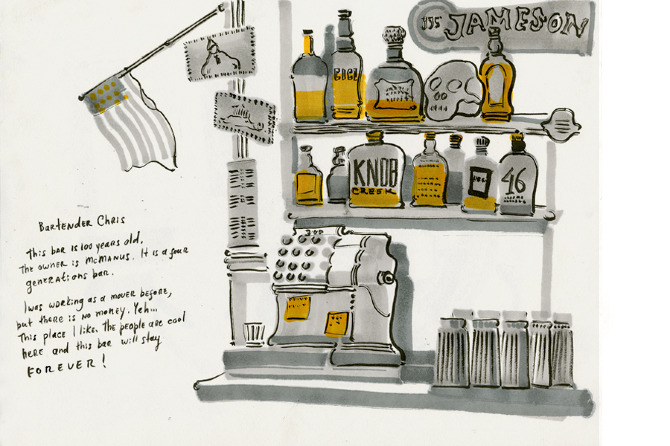 JAMESON
KNOB
CREEK
46
Bartender Chris
This bar is 100 years old,
The owner is McManus. It is a four
generations bar.
I was working as a mover before,
but there is no money. Yeh...
This place I like. The people are cool
here and this bar will stay
FOREVER!